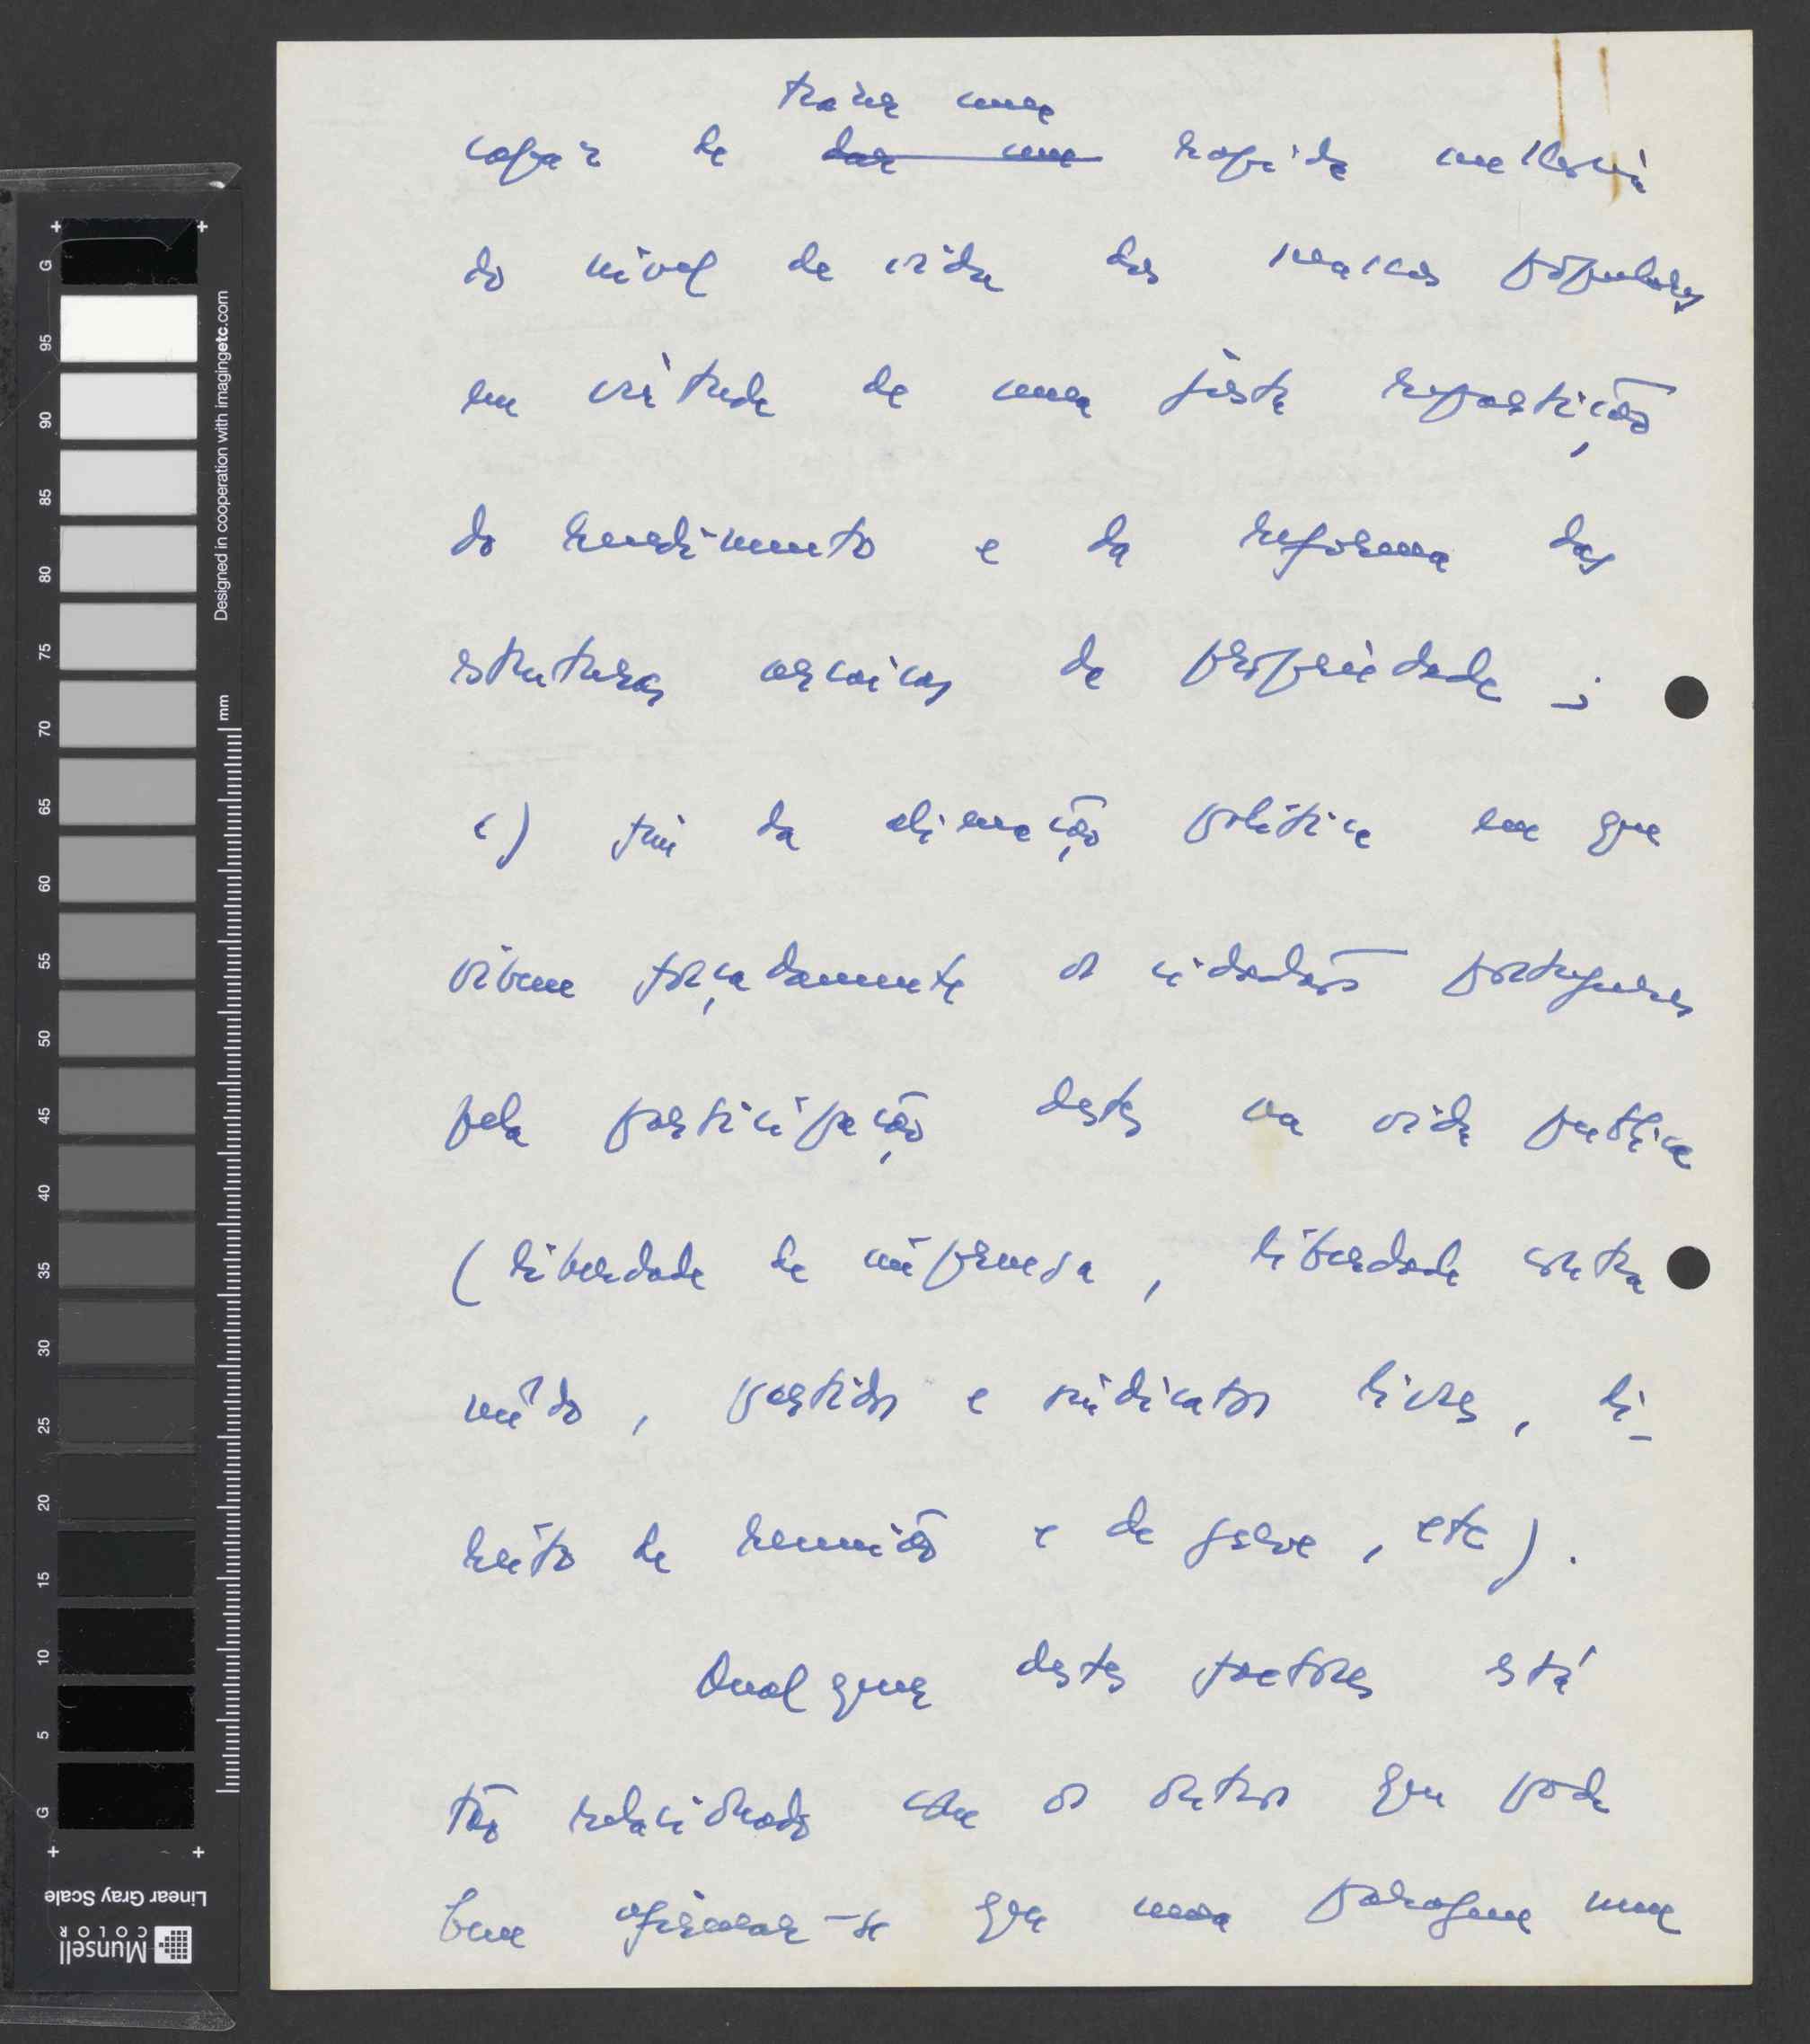 trazer uma
capaz de dar uma rápida melhoria
do nível de vida das massas populares
em virtude de uma justa repartição
do rendimento e da reforma das
estruturas arcaicas de propriedade ;
c) fim da alienação política em que
vivem forçadamente os cidadãos portugueses
pela participação destes na vida pública
(liberdade de imprensa , liberdade contra
mêdo , partidos e sindicatos livres , di-
reito de reunião e de greve , etc ) .
Qualquer destes factores está
tão relacionado com os outros que pode
bem afirmar-se que uma paragem num
Designed in cooperation with imagingetc.com
mm
G
95
90
85
80
75
70
65
60
55
50
45
40
35
30
25
20
15
10
5
G
Linear Gray Scale
Munsell
COLOR